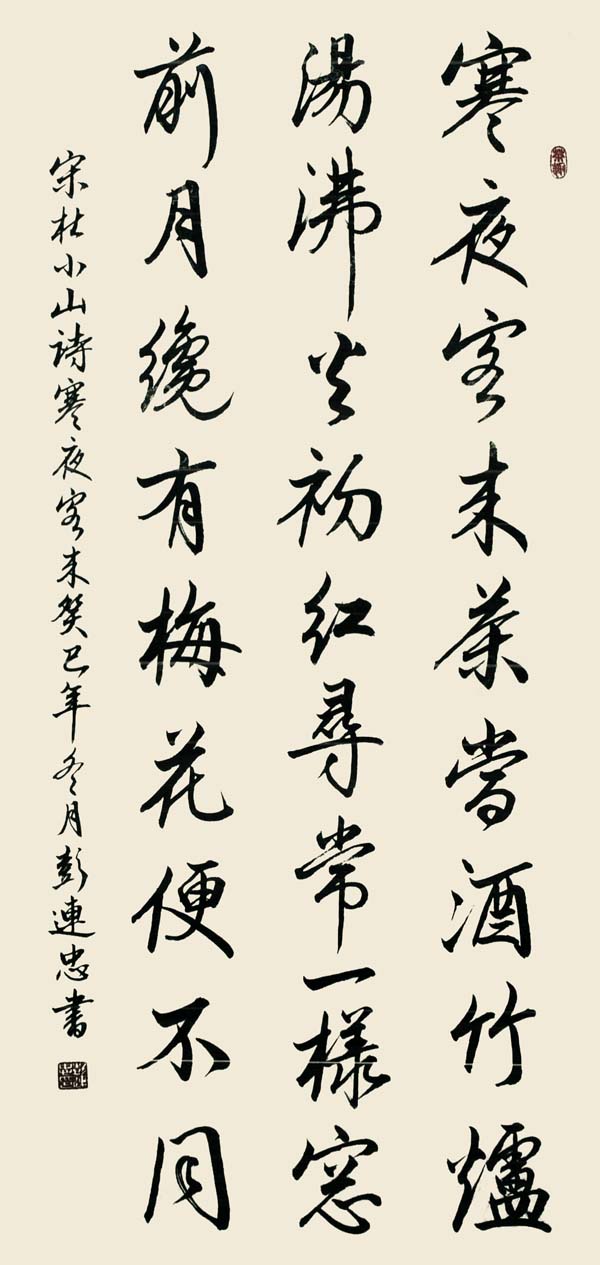 寒夜客来茶當酒竹爐
湯沸火初红尋常一樣窓
前月纔有梅花便不同
宋杜小山詩寒夜客来癸巳年冬月彭連忠書